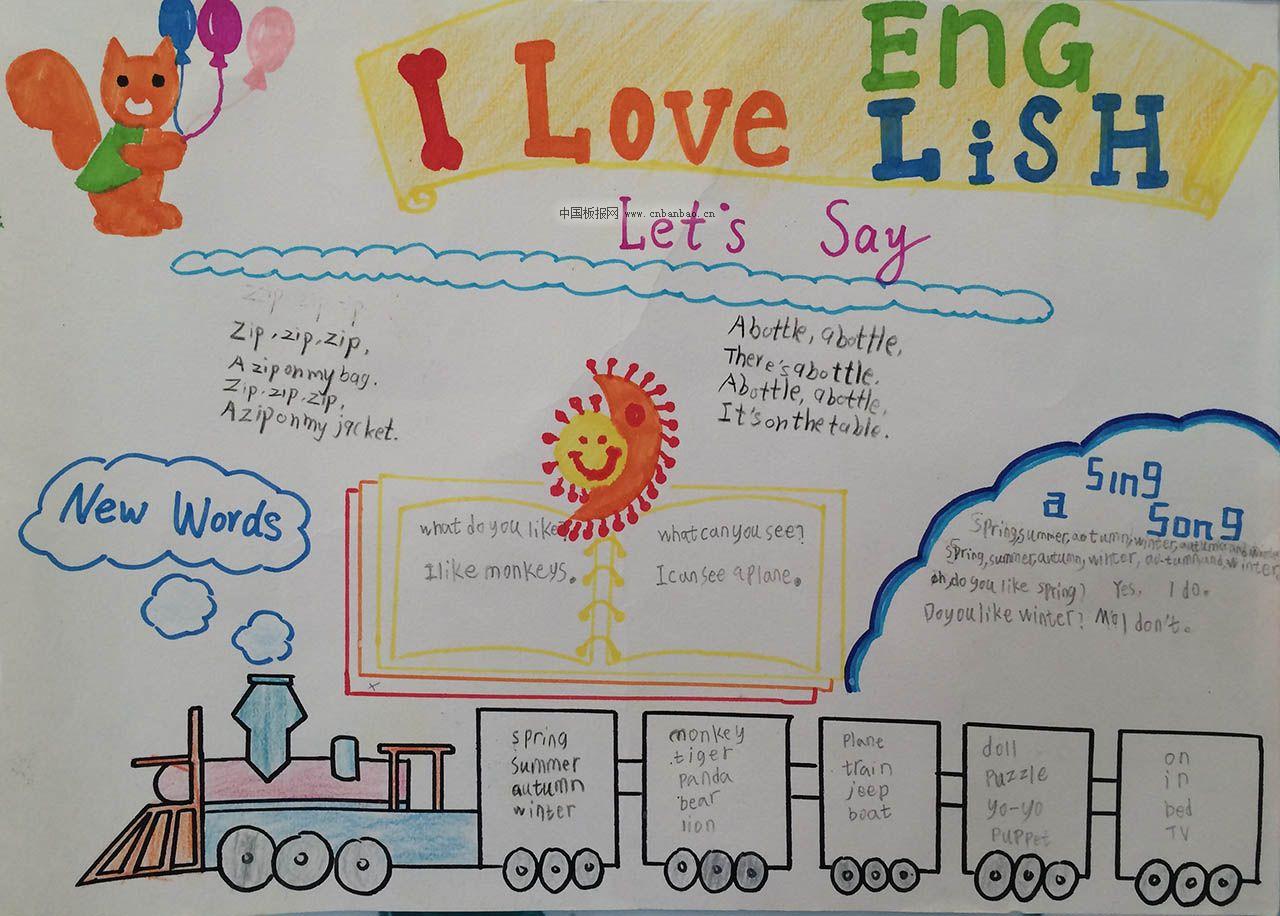 I Love ENG
LiSH
中国板报网 www.cnbanbao.cn
Let's Say
Zip, zip, zip
Zip, zip, zip,
A zip on my bag.
Zip, zip, zip,
A zip on my jacket.
A bottle, a bottle,
There's a bottle.
A bottle, a bottle,
It's on the table.
New Words
what do you like?
I like monkeys.
what can you see?
I can see a plane.
Sing
a Song
Spring, summer, autumn, winter, autumn and winter
Spring, summer, autumn, winter, autumn and winter
oh, do you like spring? Yes, I do.
Do you like winter? No I don't.
spring
summer
autumn
winter
monkey
tiger
panda
bear
lion
plane
train
jeep
boat
doll
puzzle
yo-yo
puppet
on
in
bed
TV